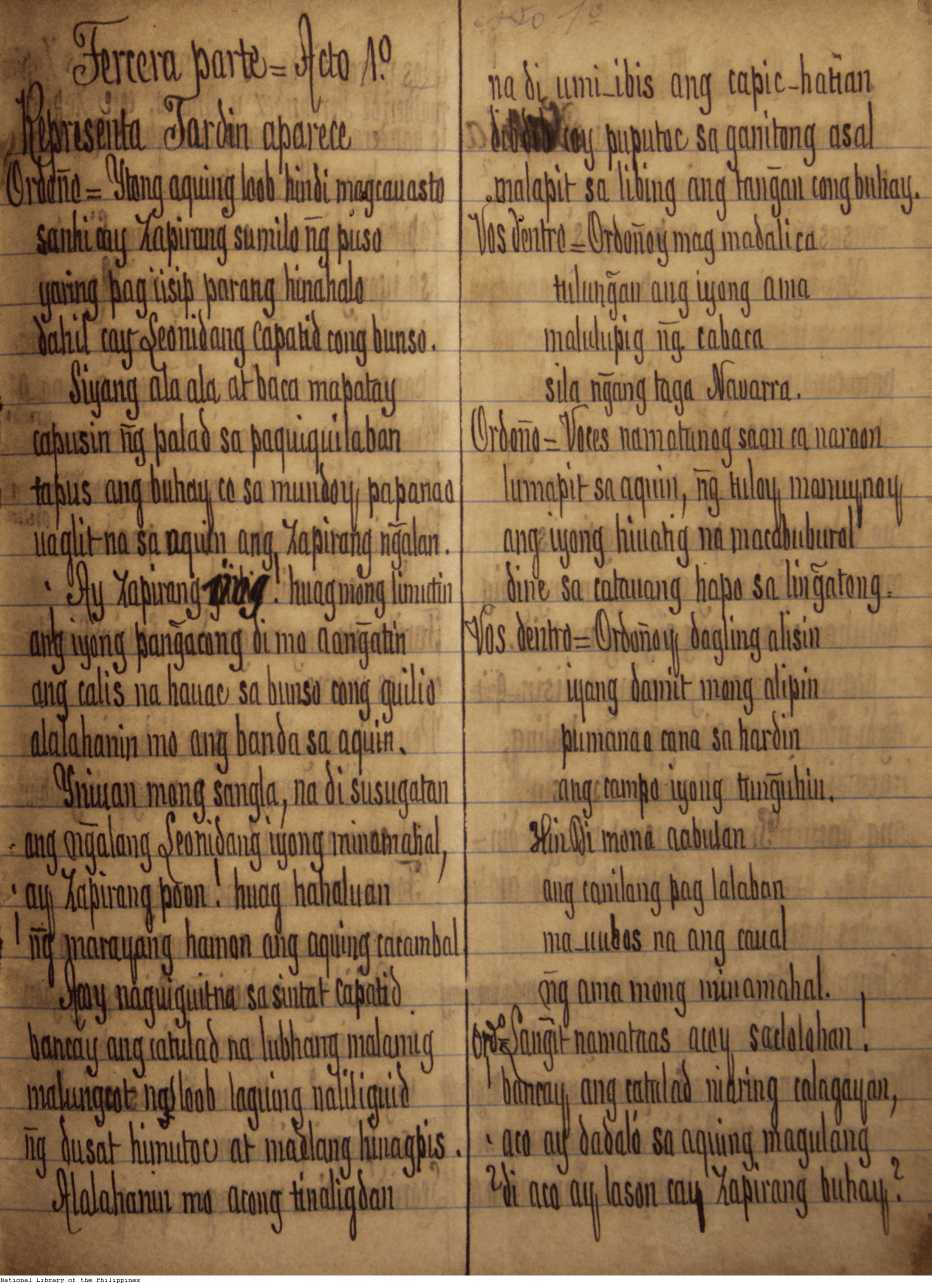 Tercera parte = Acto 1º
Representa Jardin aparece
Ordoño = Ytong aquing loob hindi magcauasto
sanhi cay Zapirang sumilo n̄g puso
yaring pag iisip parang hinahalo
dahil cay Leonidang capatid cong bunso.
Siyang ala ala at baca mapatay
capusin n̄g palad sa paquiquilaban
tapus ang buhay co sa mundoy papanao
uaglit na sa aquin ang Zapirang n̄galan.
Ay Zapirang ! huag mong limutin
ang iyong pan̄gacong di mo aan̄gatin
ang calis na hauac sa bunso cong guilio
alalahanin mo ang banda sa aquin.
Yniuan mong sangla, na di susugatan
ang n̄galang Leonidang iyong minamahal,
ay Zapirang poon! huag hahaluan
n̄g marayang hamon ang aquing cacambal
Acoy naguiguit na sa sintat capatid
bancay ang catulad na lubhang malamig
malungcot ng loob laguing naliliguid
n̄g dusat himutoc at madlang hinagpis.
Alalahanin mo acong tinaligdan
na di umi-ibis ang capic-hatian
coy puputoc sa ganitong asal
malapit sa libing ang tan̄gan cong buhay.
Vos dentro = Ordoñoy mag madali ca
tulun̄gan ang iyong ama
malulupig n̄g cabaca
sila n̄gang taga Navarra.
Ordoño = Voces namatunog saan ca naroon
lumapit sa aquin, n̄g tuloy manuynoy
ang iyong hiuatig na macabubural
dine sa catauang hapo sa lin̄gatong.
Vos dentro = Ordoñoy dagling alisin
iyang damit mong alipin
pumanao cana sa hardin
ang campo iyong tun̄guhin.
Hindi mona aabutan
ang canilang pag lalaban
ma-uubos na ang caual
n̄g ama mong minamahal.
Ordº Lan̄git namataas acoy saclolohan!
bancay ang catulad niaring calagayan,
aco ay dadalo sa aquing magulang
?di aco ay lason cay Zapirang buhay?
National Library of the Philippines